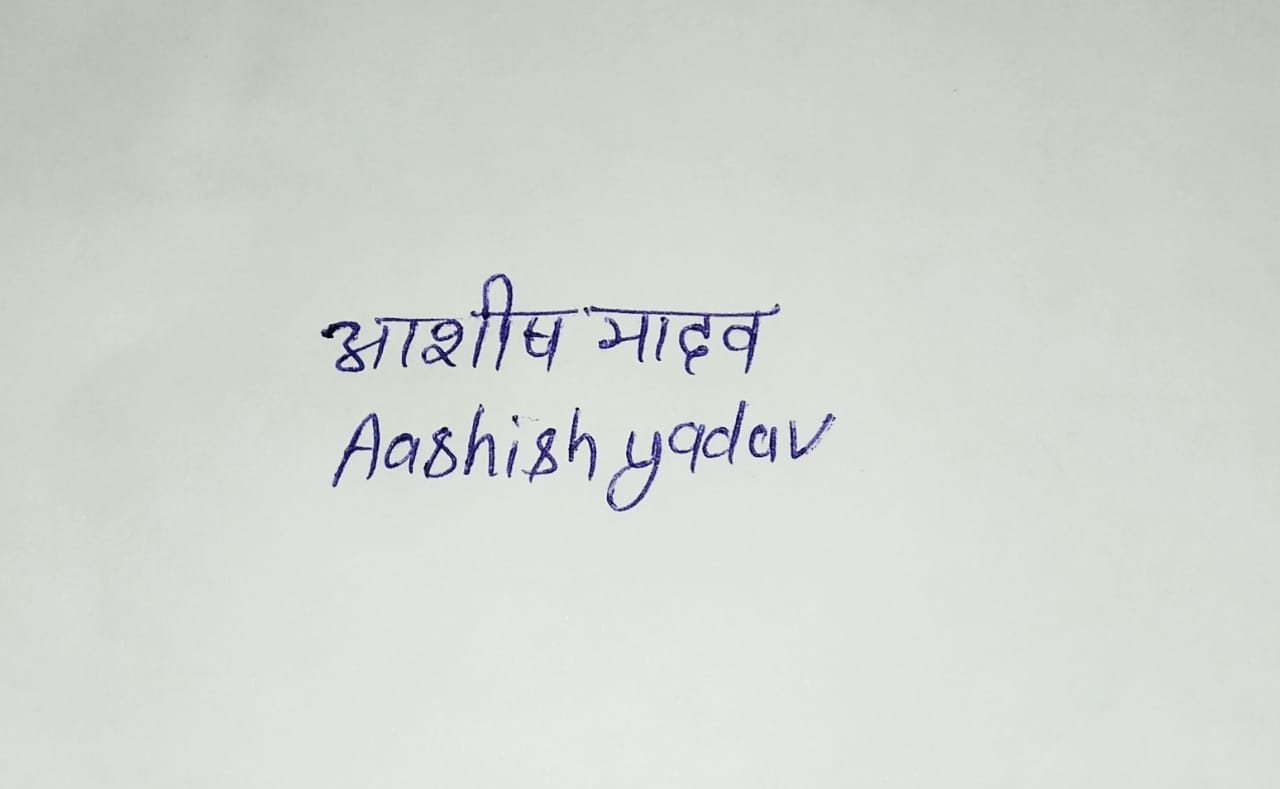 आशीष यादव
Aashish yadav